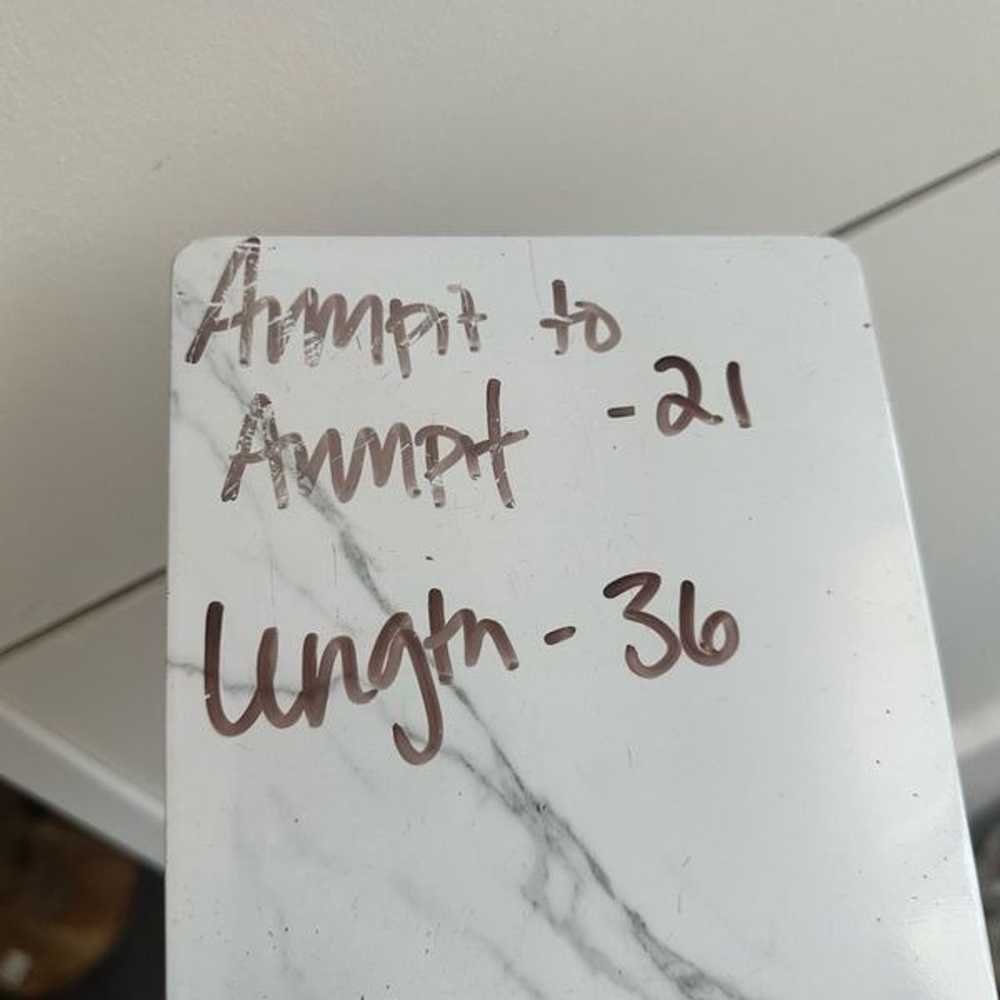 Armpit to
Armpit - 21
Length - 36